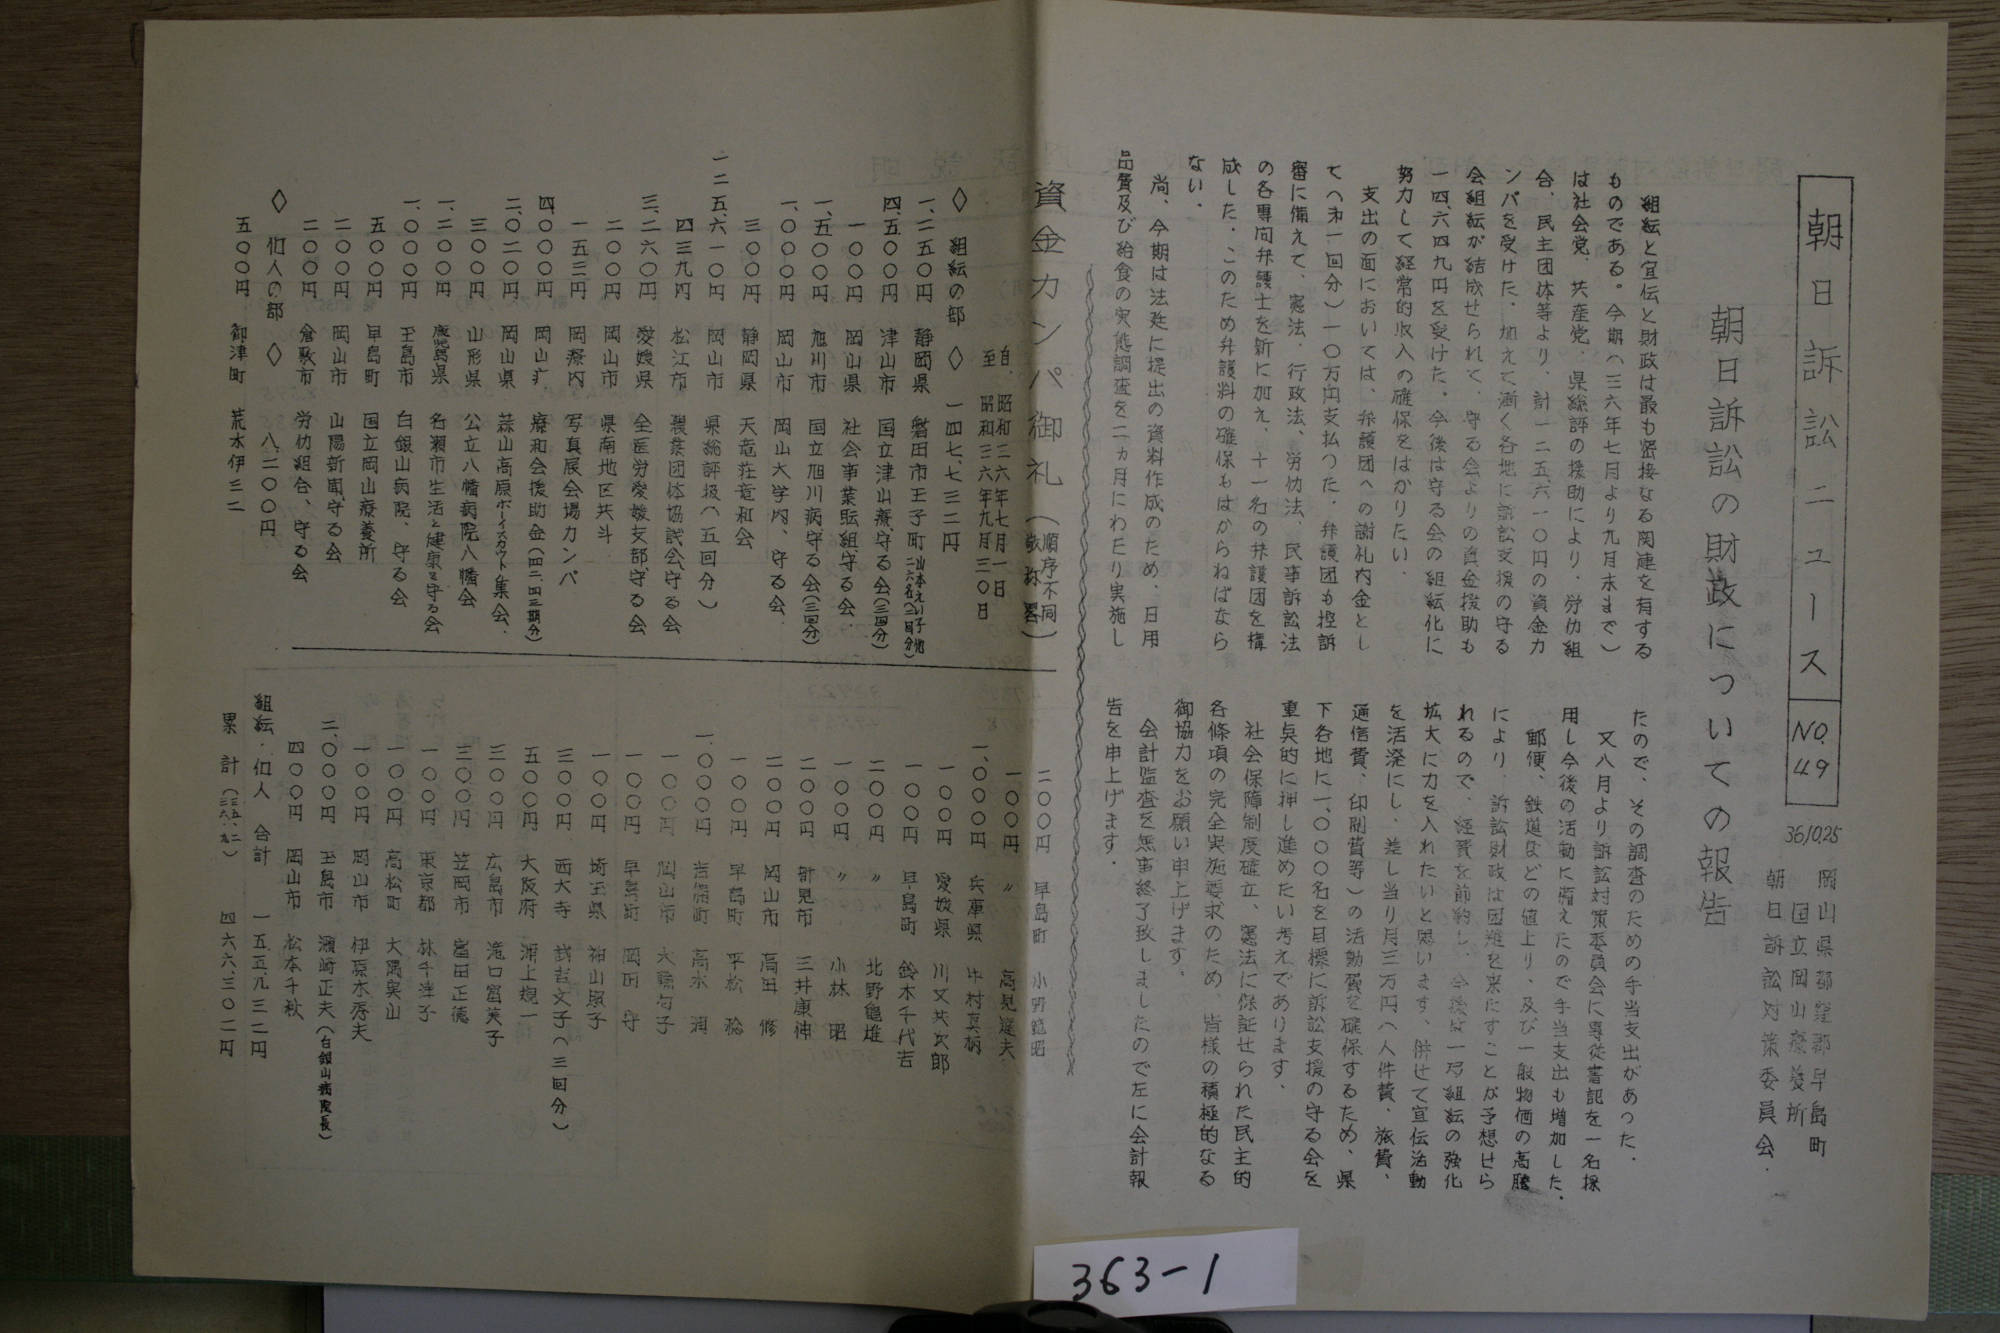 朝日訴訟ニュース NO.49
36.10.25
岡山県都窪郡早島町
国立岡山療養所
朝日訴訟対策委員会.
朝日訴訟の財政についての報告
組紜と宣伝と財政は最も密接なる関連を有する
ものである。今期(三六年七月より九月末まで)
は社会党、共産党、県総評の援助により、労仂組
合、民主団体等より、計一二五、六一〇円の資金カ
ンパを受けた。加えて漸く各地に訴訟支援の守る
会組紜が結成せられて、守る会よりの資金援助も
一四、六四九円を受けた。今後は守る会の組紜化に
努力して経常的収入の確保をはかりたい.
支出の面においては、弁護団への謝礼内金とし
て(才一回分)一〇万円支払った。弁護団も控訴
審に備えて、憲法、行政法、労仂法、民事訴訟法
の各専問弁護士を新に加え、十一名の弁護団を構
成した。このため弁護料の確保もはからねばなら
ない.
尚、今期は法廷に提出の資料作成のため、日用
品費及び給食の実態調査を二ヵ月にわたり実施し
たので、その調査のための手当支出があった.
又八月より訴訟対策委員会に専従書記を一名採
用し今後の活動に備えたので手当支出も増加した.
郵便、鉄道などの値上り、及び一般物価の高騰
により、訴訟財政は困難を来たすことが予想せら
れるので、経費を節約し、今後は一層組紜の強化
拡大に力を入れたいと思います、併せて宣伝活動
を活溌にし、差し当り月三万円(人件費、旅費、
通信費、印刷費等)の活動費を確保するため、県
下各地に一、〇〇〇名を目標に訴訟支援の守る会を
重点的に押し進めたい考えであります.
社会保障制度確立、憲法に保証せられた民主的
各條項の完全実施要求のため、皆様の積極的なる
御協力をお願い申上げます。
会計監査を無事終了致しましたので左に会計報
告を申上げます.
資金カンパ御礼(順序不同 敬称畧)
自、昭和三六年七月一日
至 昭和三六年九月三〇日
◇ 組紜の部 ◇ 一四七、七三二円
一、二五〇円 静岡県 磐田市王子町(山本えい子他二六名)(二回分)
四、五〇〇円 津山市 国立津山療、守る会(三回分)
一〇〇円 岡山県 社会事業職組、守る会.
一、五〇〇円 旭川市 国立旭川病、守る会(三回分)
一、〇〇〇円 岡山市 岡山大学内、守る会.
三〇〇円 静岡県 天竜荘竜和会
一二五、六一〇円 岡山市 県総評扱(五回分)
四三九円 松江市 親業団体協試会、守る会
三、二六〇円 愛媛県 全医労愛媛支部、守る会
二〇〇円 岡山市 県南地区共斗
一五三円 岡療内 写真展会場カンパ
四、〇〇〇円 岡山疒 療和会援助金(四二、四三期分)
二、〇二〇円 岡山県 蒜山高原ボーイスカウト集会.
三〇〇円 山形県 公立八幡病院八幡会
一、二〇〇円 鹿児島県 名瀬市生活と健康を守る会
一、〇〇〇円 玉島市 白銀山病院、守る会
五〇〇円 早島町 国立岡山療養所
二〇〇円 岡山市 山陽新聞、守る会
二〇〇円 倉敷市 労仂組合、守る会
◇ 個人の部 ◇ 八、二〇〇円
五〇〇円 御津町 荒木伊三二
二〇〇円 早島町 小野範昭
一〇〇円 〃 高見達夫
一、〇〇〇円 兵庫県 中村真柄
一〇〇円 愛媛県 川又共次郎
一〇〇円 早島町 鈴木千代吉
二〇〇円 〃 北野亀雄
一〇〇円 〃 小林 昭
二〇〇円 新見市 三井康伸
二〇〇円 岡山市 高田 修
一〇〇円 早島町 平松 稔
一、〇〇〇円 吉備町 高木 潤
一〇〇円 岡山市
一〇〇円 早島町 岡田 守
一〇〇円 埼玉県 神山照子
三〇〇円 西大寺 文子(三回分)
五〇〇円 大阪府 浦上規一
三〇〇円 広島市 滝口富美子
三〇〇円 笠岡市 富田正徳
一〇〇円 東京都 林千津子
一〇〇円 高松町 大隅実山
一〇〇円 岡山市 伊原木秀夫
二、〇〇〇円 玉島市 瀬崎正夫(白銀山病院長)
四〇〇円 岡山市 松本千秋
組紜、個人 合計 一五五、九三二円
累計 四六六、三〇二円
363-1